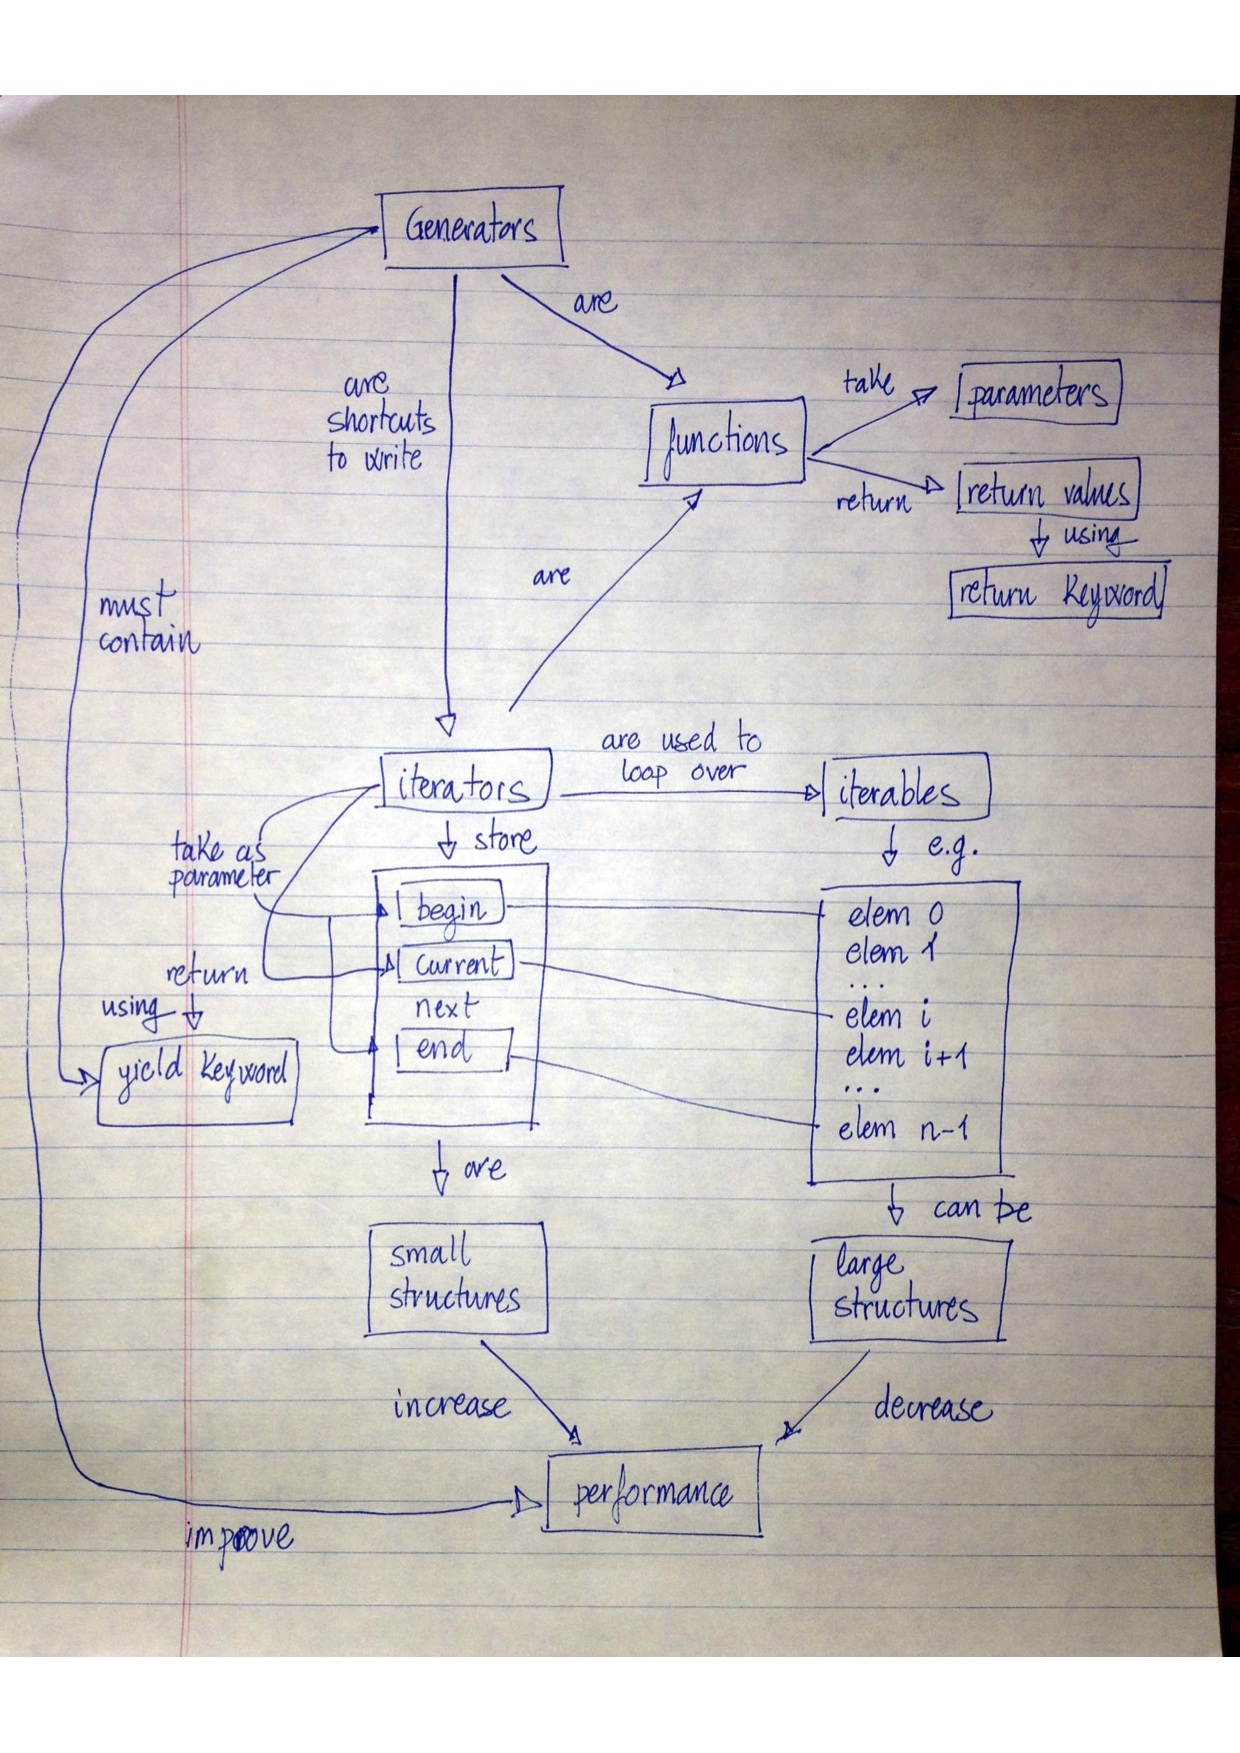 Generators
are
are
shortcuts
to write
take
parameters
functions
return values
return
using
return Keyword
are
must
contain
are used to
loop over
iterators
iterables
store
e.g.
take as
parameter
begin
current
next
end
elem 0
elem 1
...
elem i
elem i+1
...
elem n-1
return
using
yield Keyword
are
can be
small
structures
large
structures
increase
decrease
performance
improve